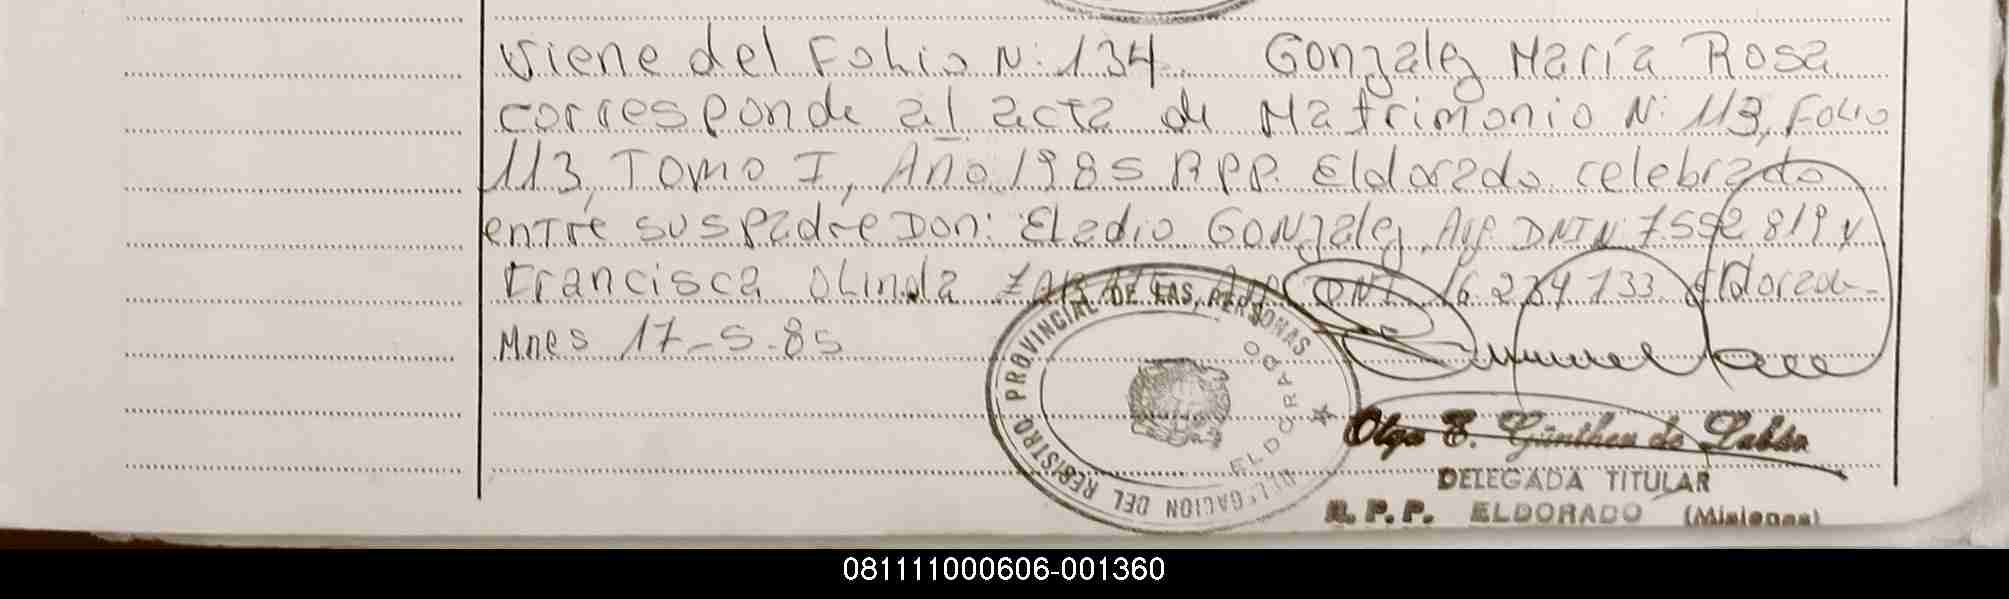 Viene del Folio N: 134. Gonzalez María Rosa
corresponde al acta de Matrimonio N: 113, Folio
113, Tomo I, Año 1985 RPP. Eldorado celebrado
entre sus padre Don: Eladio Gonzalez, Arg. DNI N 7.552 819 y
Francisca Olinda DNI 16.224 733 Eldorado-
Mnes 17-5-85
DELEGACION DEL REGISTRO PROVINCIAL DE LAS PERSONAS
ELDORADO
Olga E. Günther de
DELEGADA TITULAR
R. P. P. ELDORADO (Misiones)
081111000606-001360